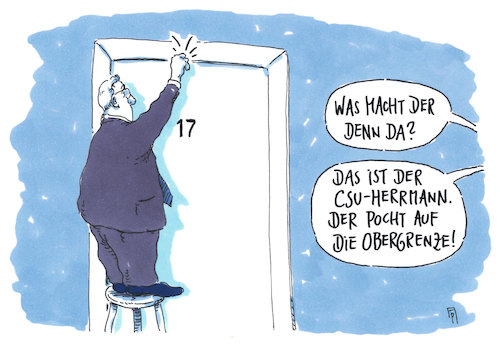 17
WAS MACHT DER
DENN DA?
DAS IST DER
CSU-HERRMANN.
DER POCHT AUF
DIE OBERGRENZE!